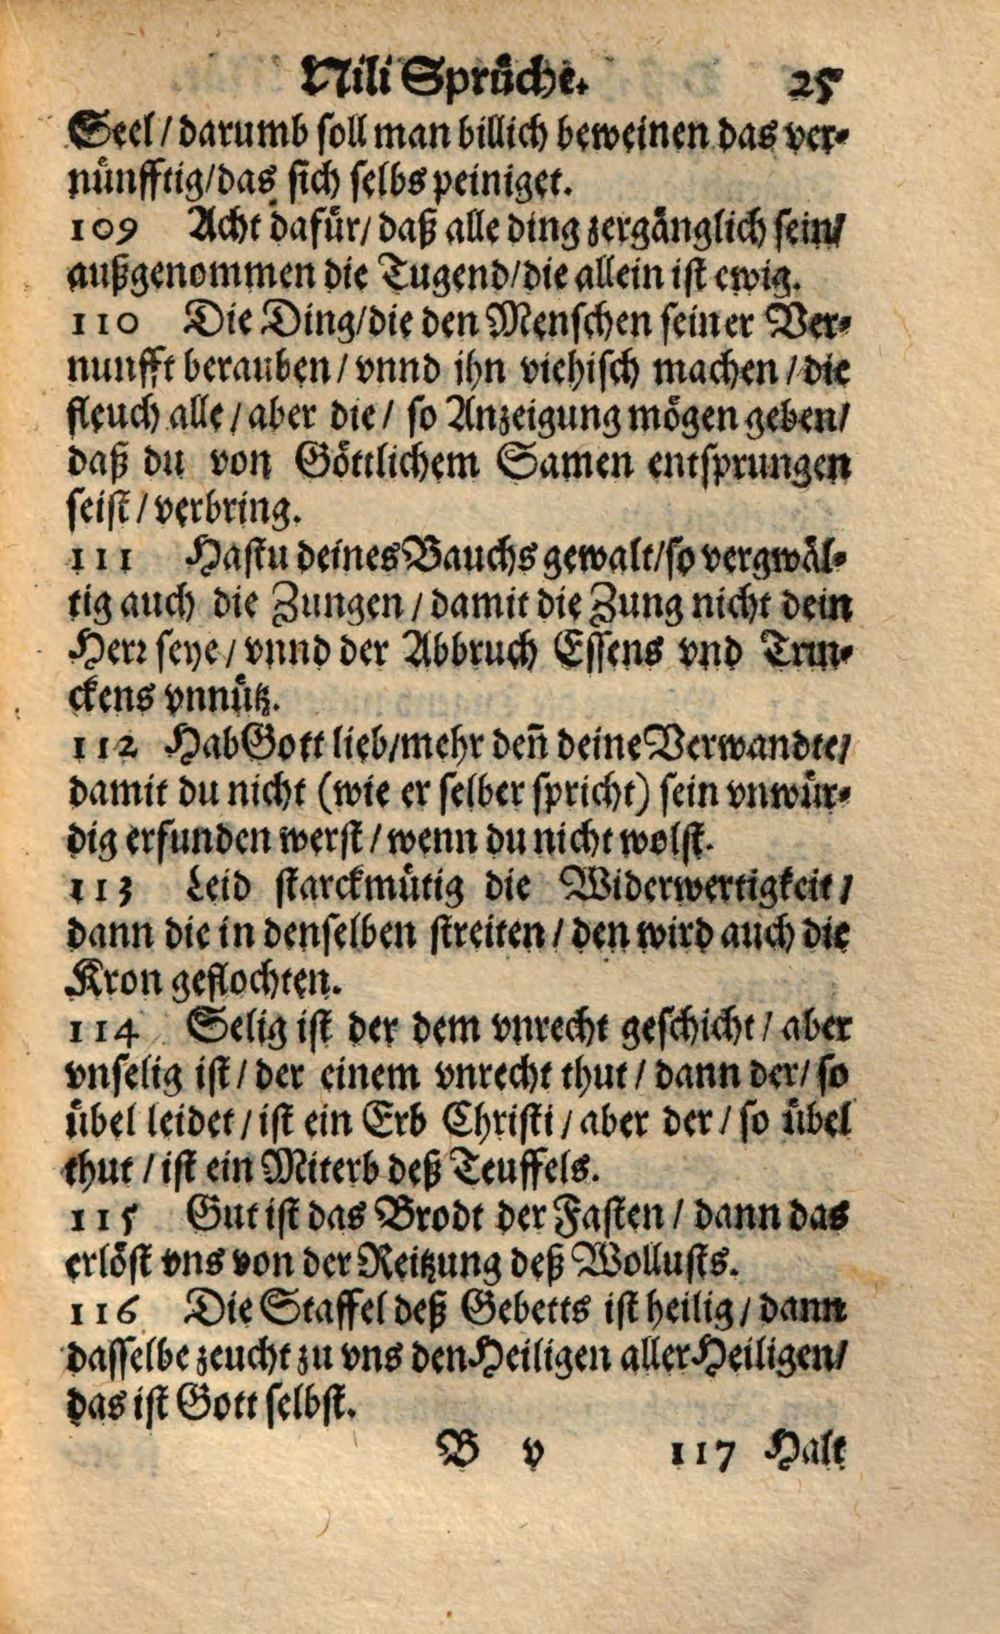 Nili Sprüche. 25
Seel / darumb soll man billich beweinen das ver-
nünfftig / das sich selbs peiniget.
109 Acht dafür / daß alle ding zergänglich sein /
außgenommen die Tugend / die allein ist ewig.
110 Die Ding / die den Menschen seiner Ver-
nunfft berauben / vnnd ihn viehisch machen / die
fleuch alle / aber die / so Anzeigung mögen geben /
daß du von Göttlichem Samen entsprungen
seist / verbring.
111 Hastu deines Bauchs gewalt / so vergwäl-
tig auch die Zungen / damit die Zung nicht dein
Herr seye / vnnd der Abbruch Essens vnd Trin-
ckens vnnütz.
112 Hab Gott lieb / mehr deñ deine Verwandte /
damit du nicht (wie er selber spricht) sein vnwür-
dig erfunden werst / wenn du nicht wolst.
113 Leid starckmütig die Widerwertigkeit /
dann die in denselben streiten / den wird auch die
Kron geflochten.
114 Selig ist der dem vnrecht geschicht / aber
vnselig ist / der einem vnrecht thut / dann der / so
übel leidet / ist ein Erb Christi / aber der / so übel
thut / ist ein Miterb deß Teuffels.
115 Gut ist das Brodt der Fasten / dann das
erlöst vns von der Reitzung deß Wollusts.
116 Die Staffel deß Gebetts ist heilig / dann
dasselbe zeucht zu vns den Heiligen aller Heiligen /
das ist Gott selbst.
B v 117 Halt